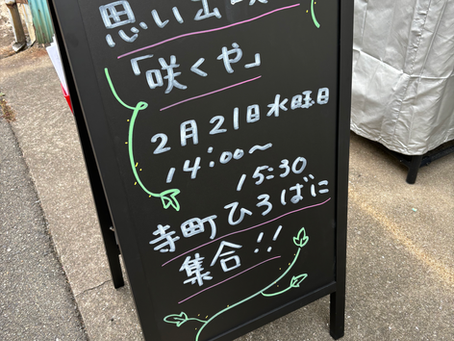 思い出
「咲くや」
2月21日水曜日
14:00〜
15:30
寺町ひろばに
集合!!